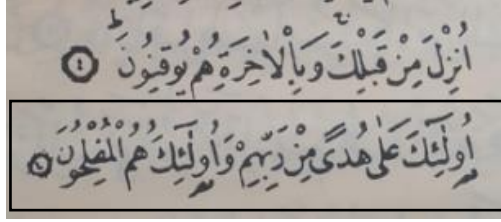 اُنْزِلَ مِنْ قَبْلِكَ وَبِاْلاٰخِرَةِ هُمْ يُوقِنُونَ ۜ ﴿٤﴾
اُو۬لٰٓئِكَ عَلٰى هُدًى مِنْ رَبِّهِمْ وَاُو۬لٰٓئِكَ هُمُ الْمُفْلِحُونَ ﴿٥﴾